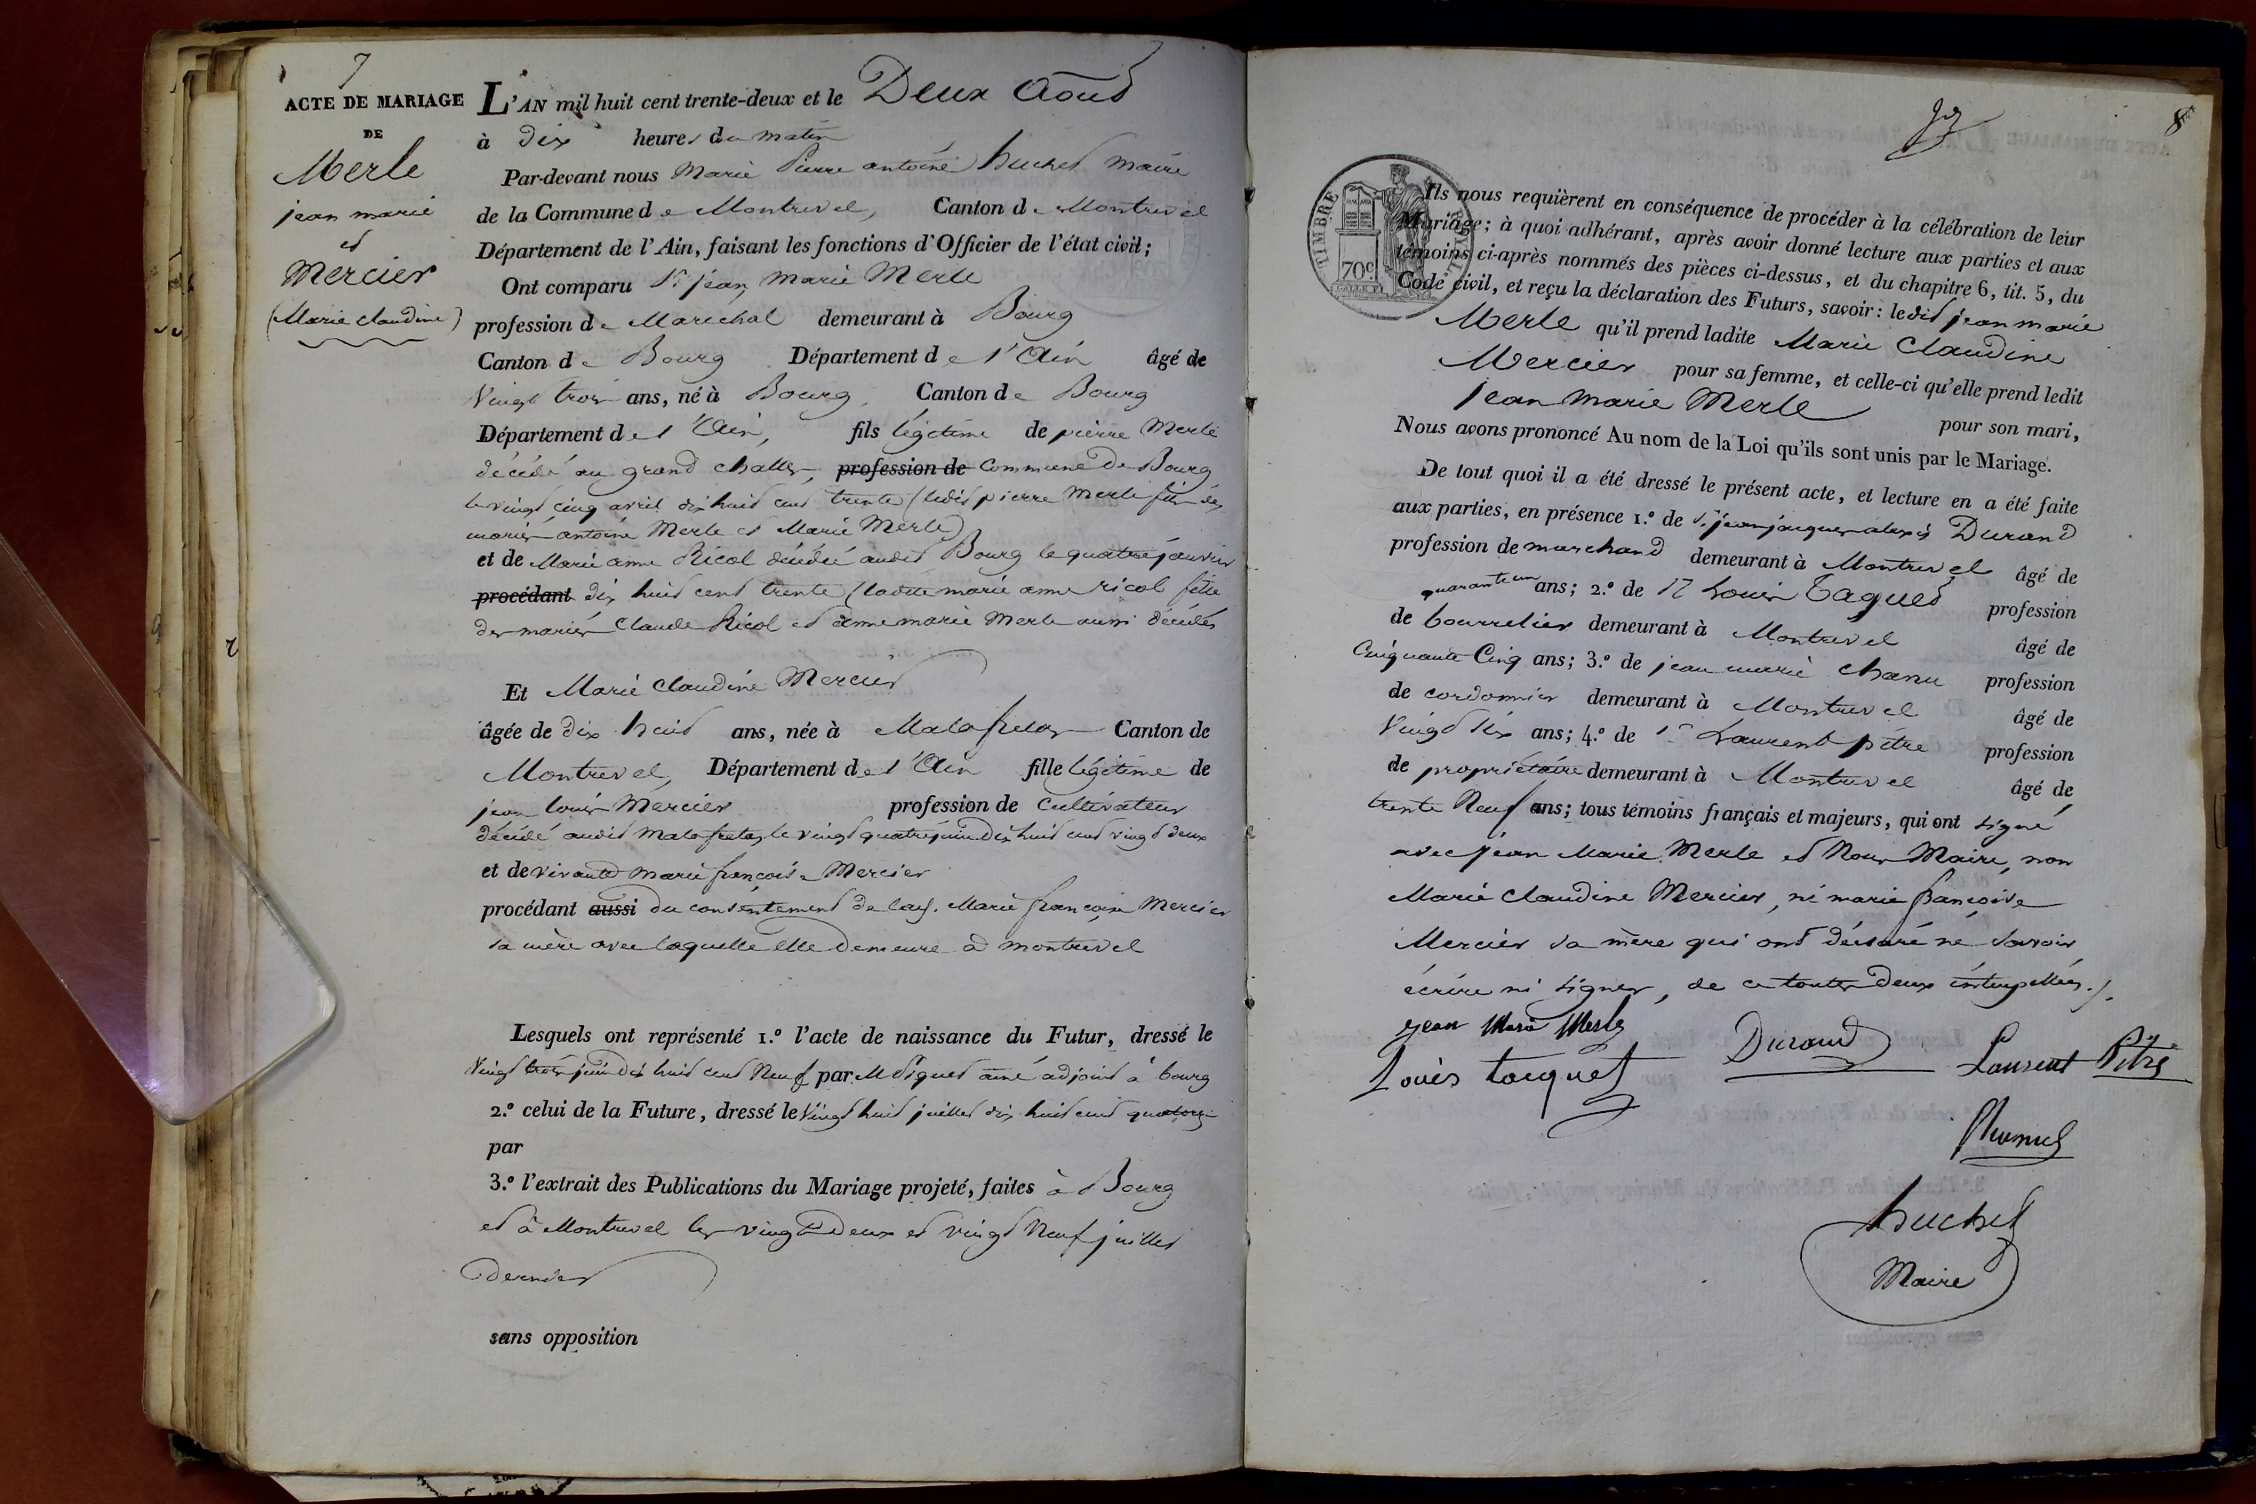 7
ACTE DE MARIAGE
DE
Merle
jean marie
et
Mercier
(Marie claudine)
L'AN mil huit cent trente-deux et le Deux Aout
à dix heures du matin
Par-devant nous Marie Pierre antoine huchet maire
de la Commune de Montrevel, Canton de Montrevel
Département de l'Ain, faisant les fonctions d'Officier de l'état civil;
Ont comparu Sr jean Marie Merle
profession de Marechal demeurant à Bourg
Canton de Bourg Département de l'Ain âgé de
Vingt trois ans, né à Bourg, Canton de Bourg
Département de l'Ain, fils légitime de pierre Merle
décédé au grand challes, profession de Commune de Bourg
le vingt cinq avril dix huit cent trente (ledit pierre Merle fils des
mariés antoine Merle et Marie Merle)
et de Marie anne Ricol décédée audit Bourg le quatre janvier
procédant dix huit cent trente (ladite marie anne ricol fille
des mariés Claude Ricol et anne marie Merle aussi décédés
Et Marie Claudine Mercier
âgée de dix huit ans, née à Malafretaz Canton de
Montrevel, Département de l'Ain fille légitime de
jean louis Mercier profession de Cultivateur
décédé audit Malafretaz le vingt quatre juin dix huit cent vingt deux
et de vivante marie françoise Mercier
procédant aussi du consentement de lad. Marie françoise Mercier
sa mère avec laquelle elle demeure à montrevel
Lesquels ont représenté 1.º l'acte de naissance du Futur, dressé le
Vingt trois juin dix huit cent Neuf par M. ainé adjoint à bourg
2.º celui de la Future, dressé le Vingt huit juillet dix huit cent quatorze
par
3.º l'extrait des Publications du Mariage projeté, faites à Bourg
et à Montrevel les vingt Deux et vingt Neuf juillet
dernier
sans opposition
8
TIMBRE ROYAL
70c
Ils nous requièrent en conséquence de procéder à la célébration de leur
Mariage; à quoi adhérant, après avoir donné lecture aux parties et aux
témoins ci-après nommés des pièces ci-dessus, et du chapitre 6, tit. 5, du
Code civil, et reçu la déclaration des Futurs, savoir: ledit jean marie
Merle qu'il prend ladite Marie Claudine
Mercier pour sa femme, et celle-ci qu'elle prend ledit
Jean Marie Merle pour son mari,
Nous avons prononcé Au nom de la Loi qu'ils sont unis par le Mariage.
De tout quoi il a été dressé le présent acte, et lecture en a été faite
aux parties, en présence 1.º de Sr jean jacques alexis Durand
profession de marchand demeurant à Montrevel âgé de
quarante un ans; 2.º de Sr Louis Taquet profession
de bourrelier demeurant à Montrevel âgé de
Cinquante Cinq ans; 3.º de jean marie chanu profession
de cordonnier demeurant à Montrevel âgé de
Vingt six ans; 4.º de Sr Laurent pitre profession
de proprietaire demeurant à Montrevel âgé de
trente Neuf ans; tous témoins français et majeurs, qui ont signé
avec jean Marie Merle et Nous Maire, non
Marie Claudine Mercier, ni marie françoise
Mercier sa mère qui ont déclaré ne savoir
écrire ni signer, de ce toutes deux interpellées.
jean Marie Merle
Louis taquet
Durand
Laurent Pitre
huchet
Maire